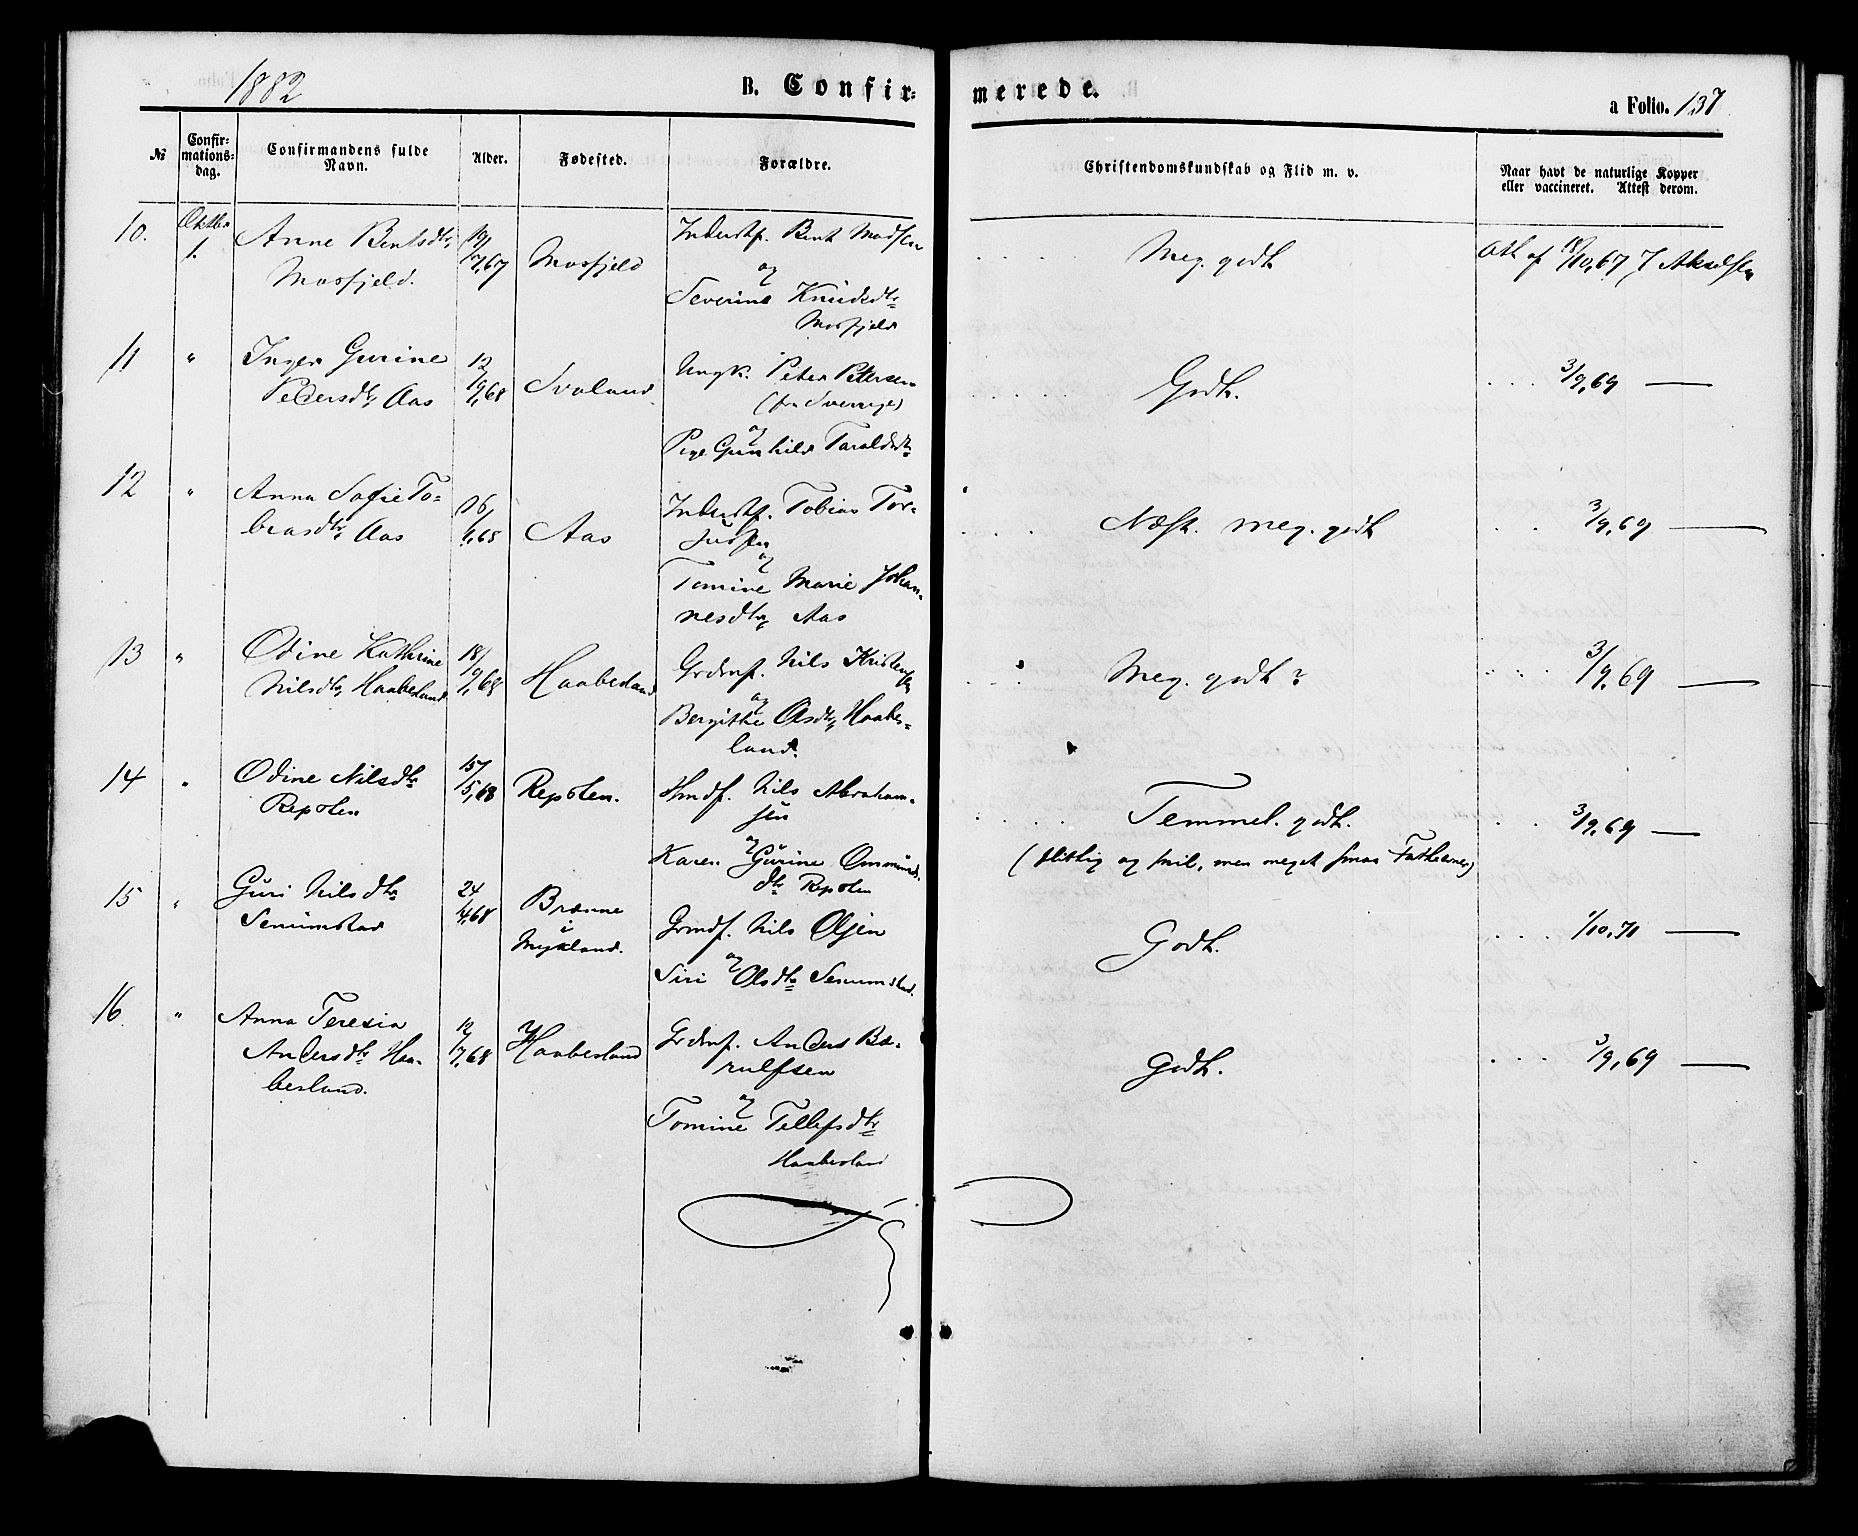 1882
B. Confir-
merede.
a Folio. 137
№
Confir-
mations-
dag.
Confirmandens fulde
Navn.
Alder.
Fødested.
Forældre.
Christendomskundskab og Flid m. v.
Naar havt de naturlige Kopper
eller vaccineret. Attest derom.
10.
Oktbr
1.
Anne Bentsdtr
Mosfjeld.
19/
7,67
Mosfjeld
Inderstf. Bent Madsen
og
Severine Knudsdtr
Mosfjeld
Meg. godt
Att af 18/10,67 J Akselsen
11
"
Inger Gurine
Pedersdtr Aas
12
/9,68
Svaland.
Ungk. Peter Petersen
(fra Sverrige)
og
Pige Gunhild Taraldsdtr
Godt.
3/9,69 —
12
"
Anna Sofie To-
biasdtr Aas
16/
Aas
Inderstf. Tobias Tor-
jussen
og
Tomine Marie Johan-
nesdtr Aas
Næst. meg. godt
3/9,69 —
13
"
Odine Kathrine
Nilsdtr Haabesland
18/
Haabesland
Grdmf. Nils Kristensen
og
Bergithe Olsdtr Haabes-
land.
Meg. godt?
3/9,69 —
14
"
Odine Nilsdtr
Repsten
15/
/5,68
Repsten.
Hmdf. Nils Abraham-
sen
og
Karen Gurine Ommunds
dtr Repsten
Temmel. godt.
(flittig og snil, men meget smaa Fatteevner)
3/9,69 —
15
"
Guri Nilsdtr
Senumstad
24
/4,68
Brænne
i
Mykland.
Grmdf. Nils Olsen
og
Siri Olsdtr Senumstad.
Godt.
1/10,71 —
16
"
Anna Teresia
Andersdtr Haa-
besland.
12
/7,68
Haabesland
Grdmf. Anders Be-
rulfsen
og
Tomine Tellefsdtr
Haabesland
Godt.
3/9,69 —